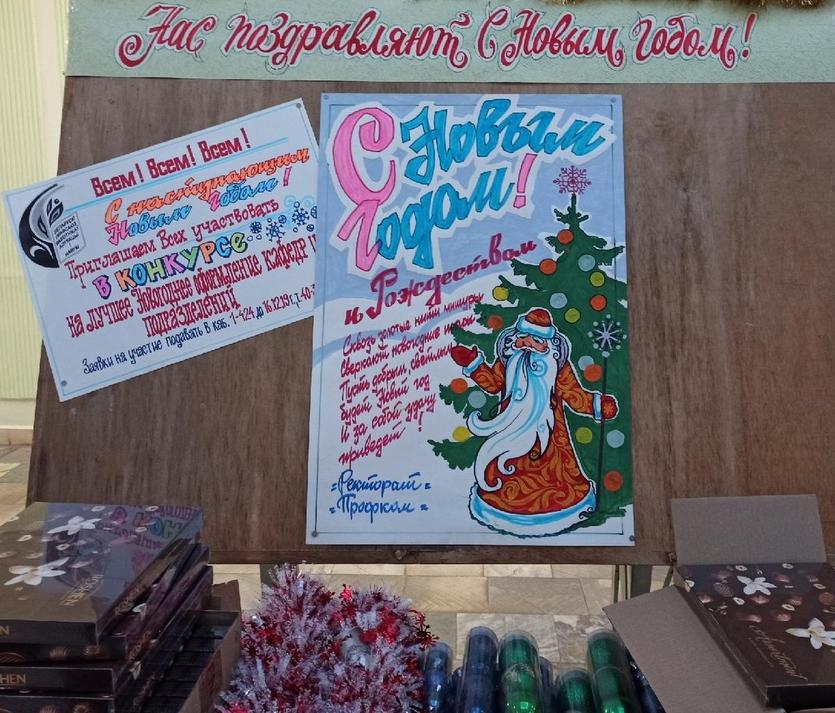 Нас поздравляют с Новым годом!
Всем! Всем! Всем!
С наступающим
Новым годом!
Приглашаем Всех участвовать
в КОНКУРСЕ
на лучшее Новогоднее оформление кафедр и
подразделений
Заявки на участие подавать в каб. 1-424 до 16.12.19 г.
С Новым
годом!
и Рождеством
Сквозь золотые нити мишуры
Сверкают новогодние
Пусть добрым, светлым
будет Новый год
И за собой удачу
приведет!
=Ректорат=
=Профком=